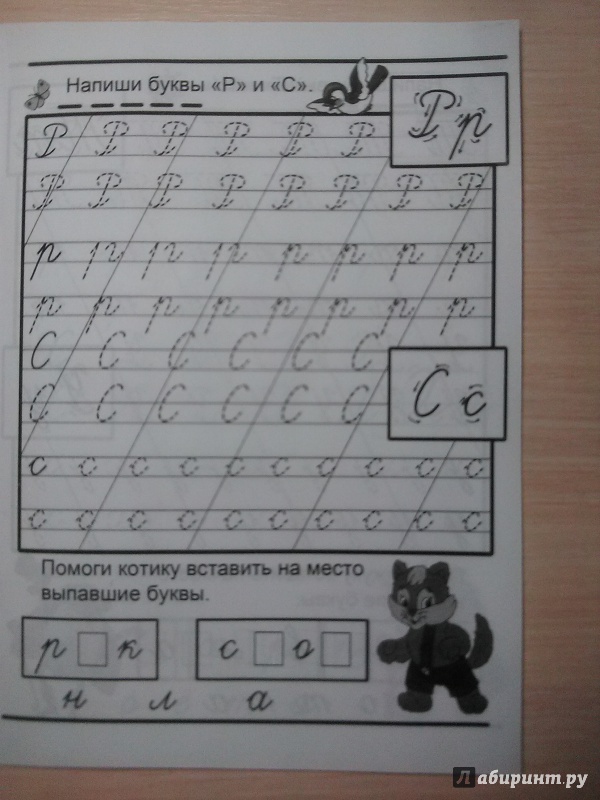 Напиши буквы «Р» и «С».
Р р
Р Р Р Р Р Р
Р Р Р Р Р Р Р Р
р р р р р р р р
р р р р р р р р
С С С С С С
С с
С С С С С С
с с с с с с с с с с
с с с с с с с с с с
Помоги котику вставить на место
выпавшие буквы.
р □ к с □ о □
н л а
Лабиринт.ру